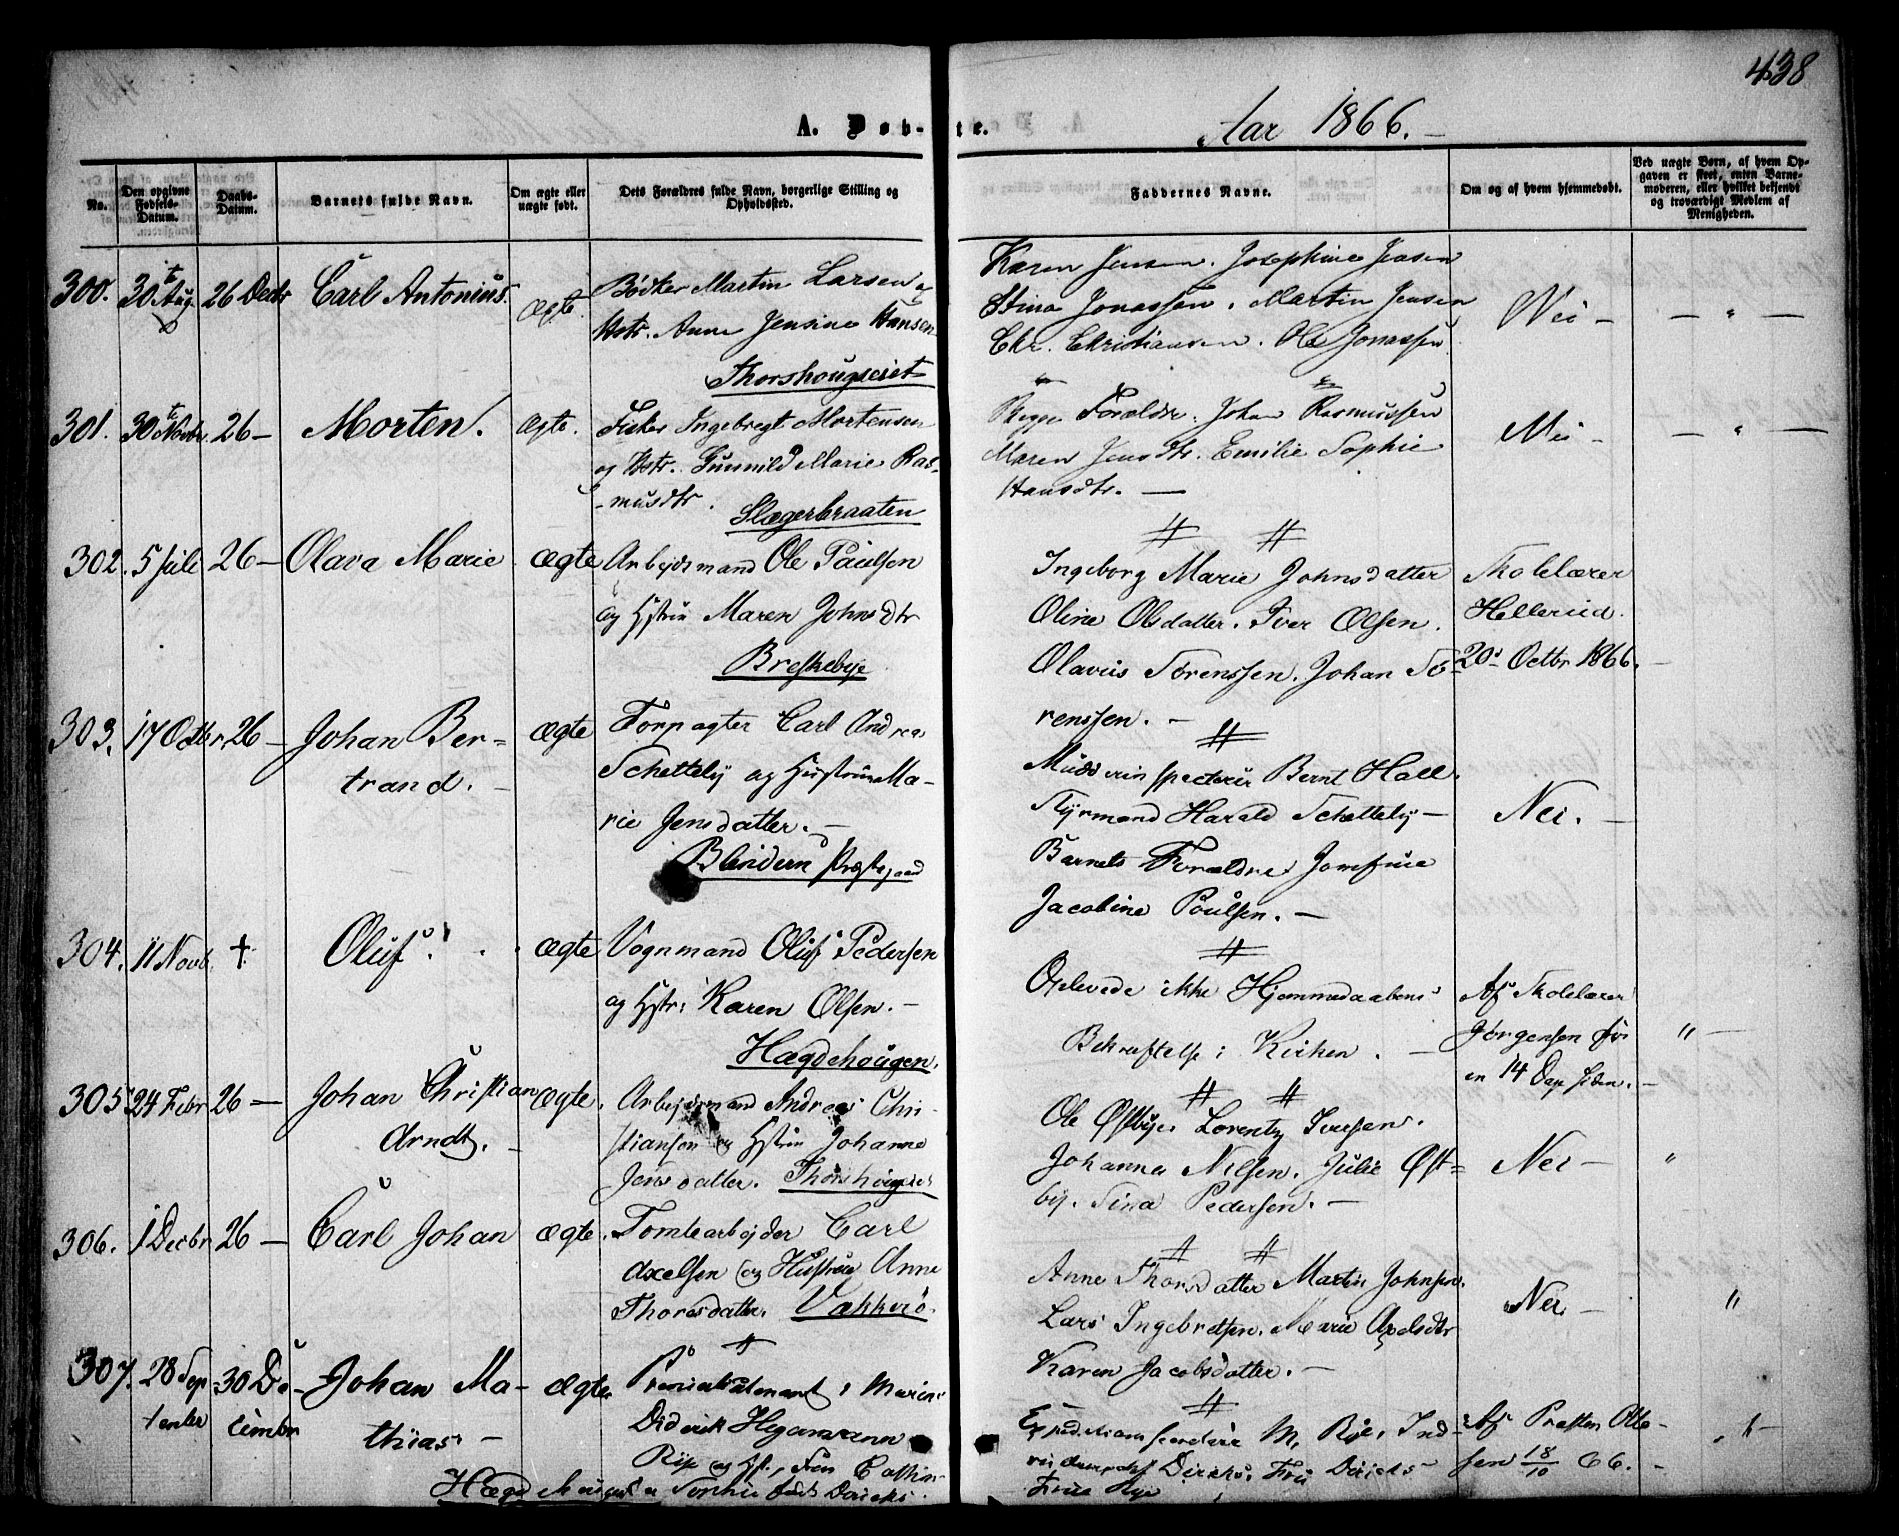 438
A. Døb-te. Aar 1866.
No.
Den opgivne Fødsels-Datum.
Daabs-Datum.
Barnets fulde Navn.
Om ægte eller uægte født.
Dets Forældres fulde Navn, borgerlige Stilling og Opholdssted.
Faddernes Navne.
Om og af hvem hjemmedøbt.
Ved uægte Børn, af hvem Opgaven er skeet, enten Barnemoderen, eller hvilket bekjendt og troværdigt Medlem af Menigheden.
300. 30te Aug. 26 Decbr Carl Antonius. Ægte.
Bødker Martin Larsen og
Hstr. Anne Jensine Hansen
Thorshougseiet
Karen Jensen. Josephine Jensen
Stina Jonassen. Martin Jensen
Chr. Christiansen. Ole Jonassen
Nei — — " —
301. 30te Novbr 26 — Morten. Ægte.
Fisker Ingebregt Mortensen
og Hstr. Gunnild Marie Ras-
musdtr.
Slægerbraaten
Begge Forældre. Johan Rasmussen
Maren Jensdtr. Emilie Sophie
Hansdtr. —
Nei — — " —
302. 5 Juli 26 — Olava Marie ægte
Arbejdsmand Ole Paulsen
og Hstru Maren Johnsdtr
Breskebye
Ingeborg Marie Johnsdatter
Oline Olsdatter. Iver Olsen.
Olavus Sørenssen. Johan Sø-
renssen. —
Skolelærer
Hellerud.
20de Octbr 1866. —
303. 17 Octbr 26 — Johan Ber=
trand. — ægte
Forpagter Carl Andreas
Schetteby og Hustru Ma-
rie Jensdatter. —
Blindern Præstegaard
Mudderinspecteur Bernt Hall.
Styrmand Harald Schetteby —
Barnets Forældre. Josefine
Jacobine Poulsen. —
Nei. —
304. 11 Novb. † Oluf. ægte
Vognmand Oluf Pedersen
og Hstr: Karen Olsen. —
Hægdehaugen.
Oplevede ikke Hjemmedaabens
Bekræftelse i Kirken. —
Af Skolelærer
Jørgensen for
en 14 Dage siden. —
" —
305. 24 Febr 26 — Johan Christian
Arndt. — ægte.
Arbejdsmand Andreas Chri-
stiansen og Hstru Johanne
Jensdatter. Thorshougeiet
Ole Østbye. Lorentz Iversen.
Johanna Nilsen. Julie Øst=
by. Sina Pedersen. —
Nei — "
306. 1 Decbr 26 — Carl Johan ægte.
Tomtearbejder Carl
Axelsen og Hustrue Anne
Thoresdatter. Vækkerø.
Anne Thorsdatter Martin Johnsen.
Lars Ingebretsen. Marie Axelsdtr
Karen Jacobsdatter. —
Nei — "
307. 28 Sep-
tember 30 De-
cember Johan Ma-
thias — ægte
Premierlieutenant i Marinen
Diderik Hegermann
Riis og Hst., Fru Cathrine
Sophie født Diriks
Hægdehaugen
Expeditionssecretær M. Riis. Ind-
Diriks. Fru Diriks —
Frue Rye
Af Præsten Olle-
sen 18/10 66. —
" —